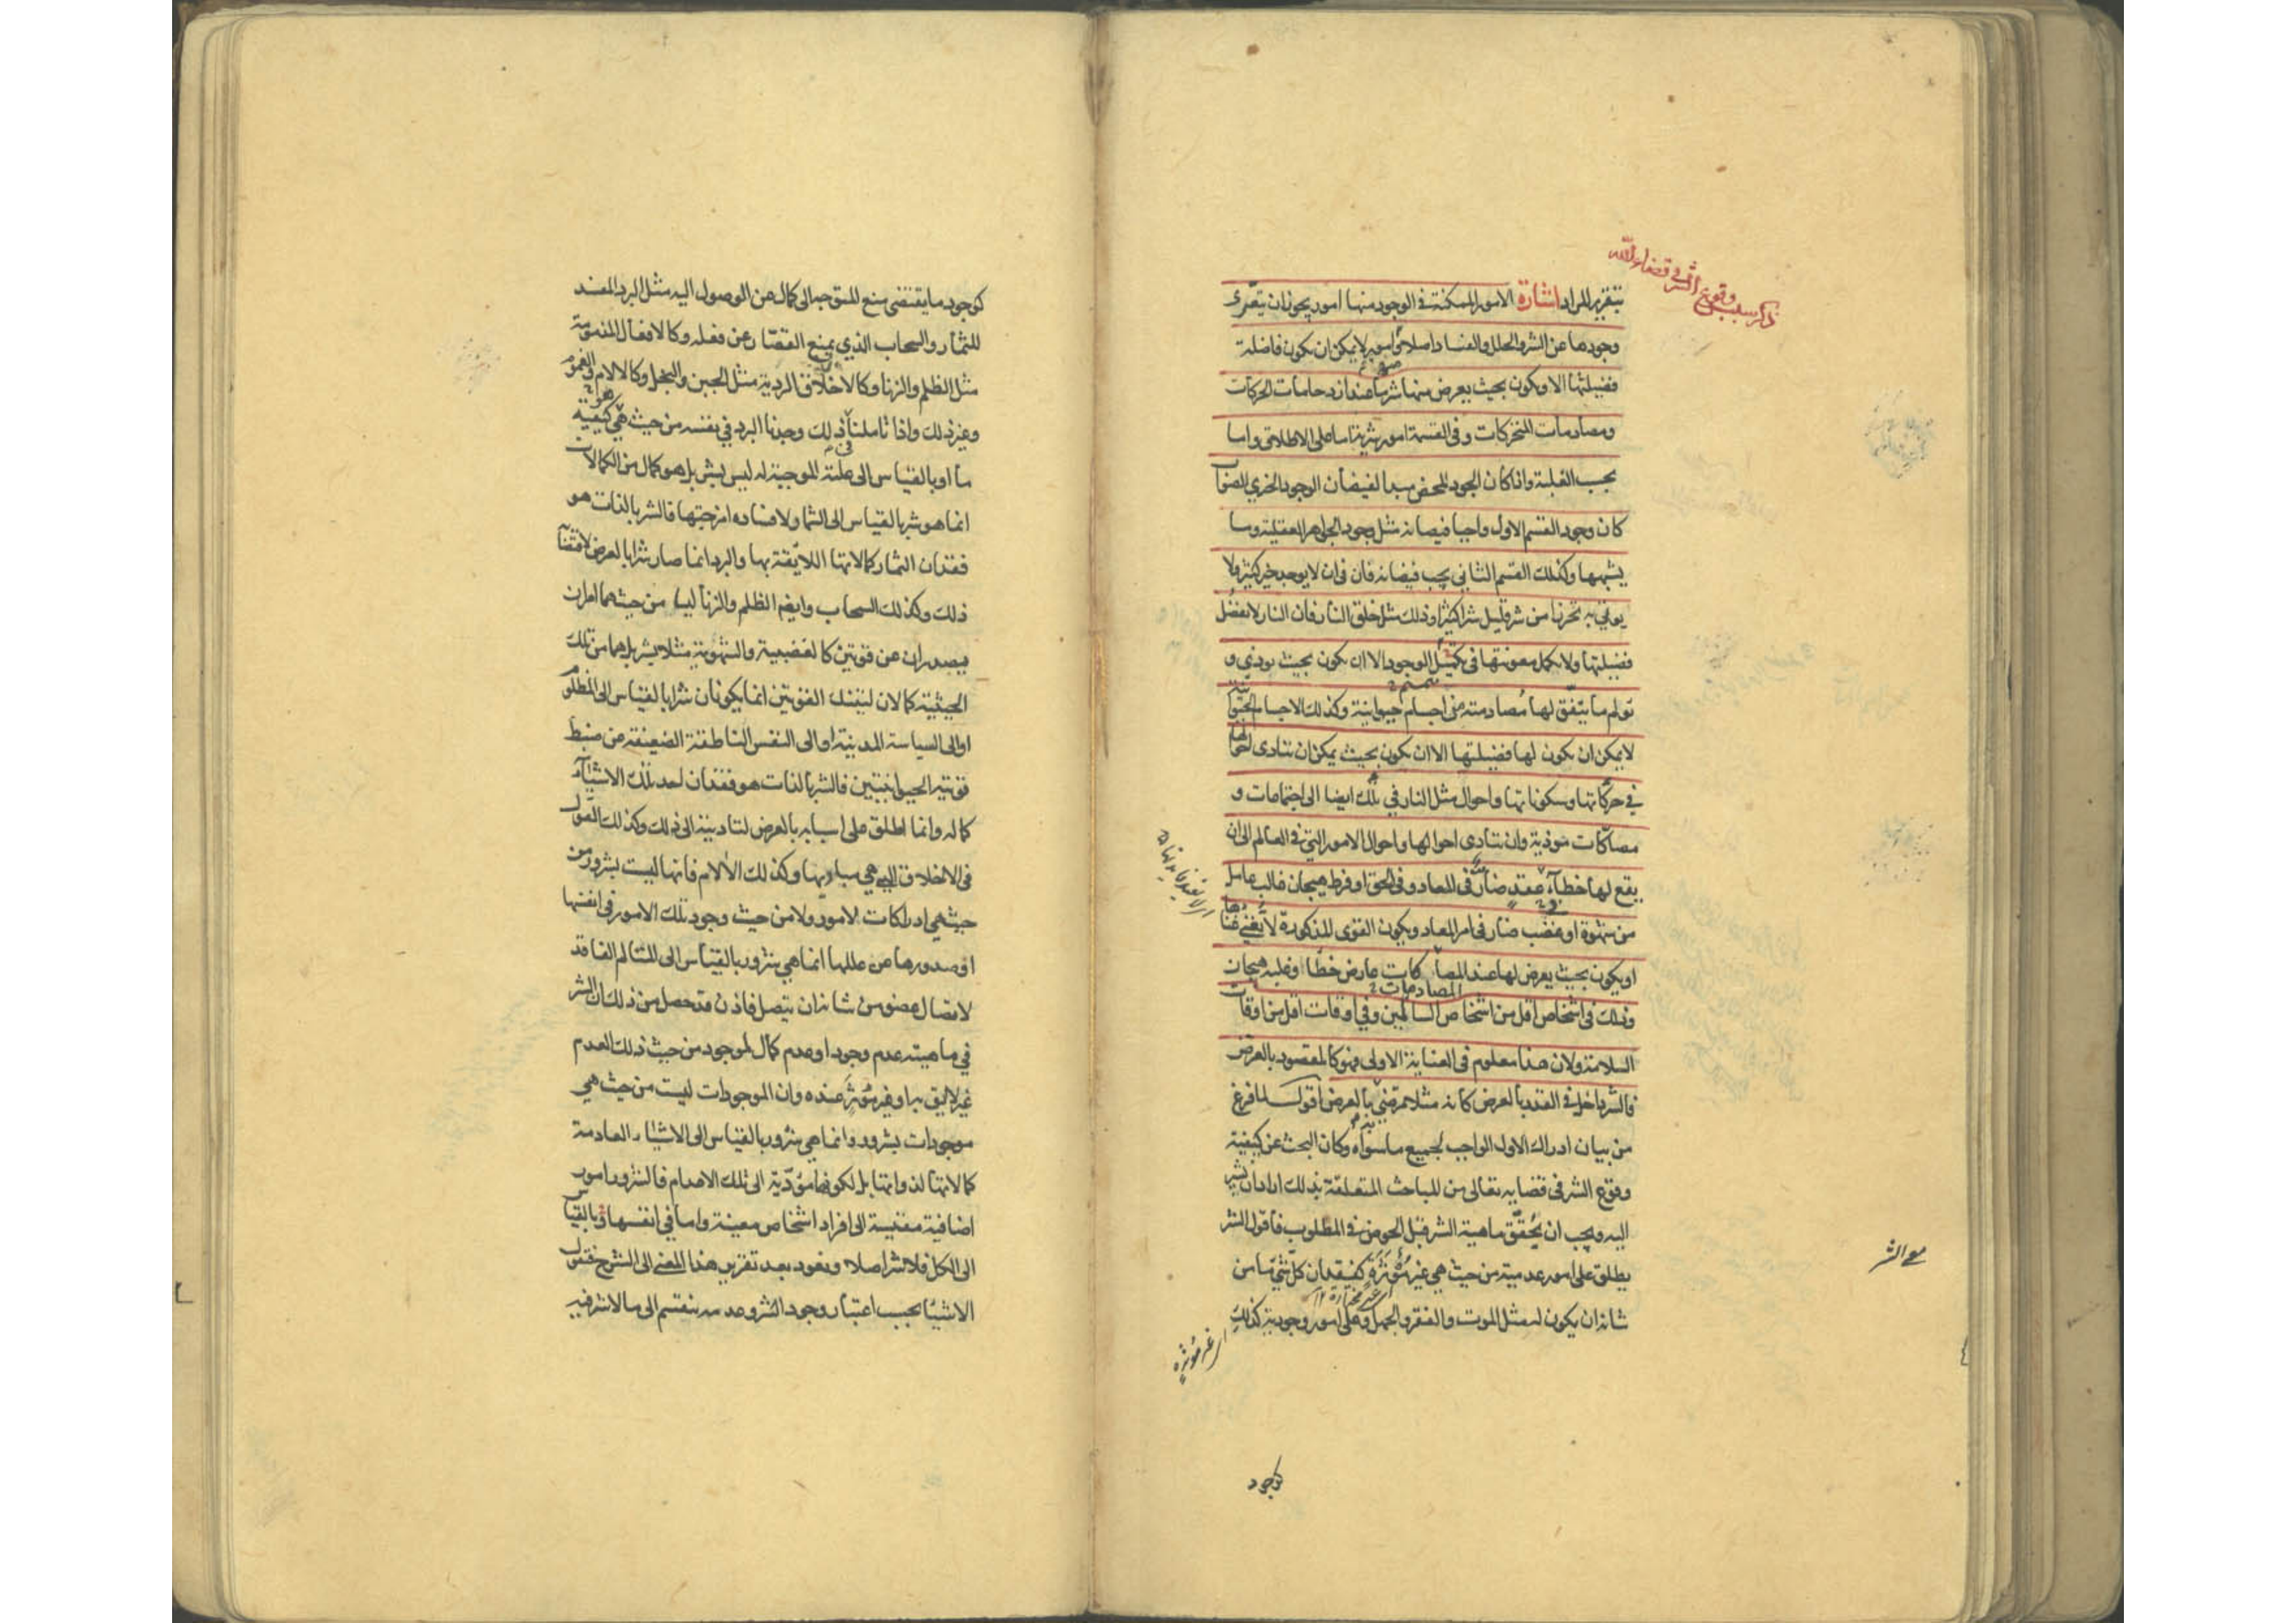 ذكر سبب وقوع الشر في قضاء الله
بتقرير المراد اشارة الامور الممكنة في الوجود منها امور يجوز ان يتعرى
وجودها عن الشر والخلل والفساد اصلا وامور لا يمكن ان يكون فاضلة
فضيلتها الا ويكون بحيث يعرض منها شر ما عند ازدحامات الحركات
ومصادمات المتحركات وفي القسمة امور شرية اما على الاطلاق واما
بحسب الغلبة واذا كان الجود المحض مبدا لفيضان الوجود الخيري الصواب
كان وجود القسم الاول واجبا فيضانه مثل وجود الجواهر العقلية وما
يشبهها وكذلك القسم الثاني يجب فيضانه فان في ان لا يوجد خير كثير ولا
يوتي به تحرزا من شر قليل شرا كثيرا وذلك مثل خلق النار فان النار لا تفضل
فضيلتها ولا تكمل معونتها في تكميل الوجود الا ان تكون بحيث توذي و
تتميم
تولم ما يتفق لها مصادمته من اجسام حيوانية وكذلك الاجسام الحيوانية
لا يمكن ان تكون لها فضيلتها الا ان تكون بحيث يمكن ان تتادى احوالها
في حركاتها وسكوناتها واحوال مثل النار في تلك ايضا الى اجتماعات و
مصاكات موذية وان تتادى احوالها واحوال الامور التي في العالم الى ان
يقع لها خطاء عقد ضار في المعاد وفي الحق او فرط هيجان غالب عامل
من شهوة او غضب ضار في امر المعاد ويكون القوى المذكورة لا تغني غناها
او يكون بحيث يعرض لها عند المصاكات عارض خطا وغلبة هيجان
المصادمات
وذلك في اشخاص اقل من اشخاص السالمين وفي اوقات اقل من اوقات
السلامة ولان هذا معلوم في العناية الاولى فهو كالمقصود بالعرض
فالشر داخل في القدر بالعرض كانه مثلا مرضي به بالعرض اقول لما فرغ
من بيان ادراك الاول الواجب لجميع ما سواه وكان البحث عن كيفية
وقوع الشر في قضايه تعالى من المباحث المتعلقة بذلك اراد ان يشير
اليه ويجب ان يحقق ماهية الشر قبل الخوض في المطلوب فاقول الشر
معنى الشر
يطلق على امور عدمية من حيث هي غير مؤثرة كفقدان كل شيء ما من
شانه ان يكون له مثل الموت والفقر والجهل وعلى امور وجودية كذلك
اي غير مؤثرة
كوجود
كوجود ما يقتضي منع المتوجه الى كمال عن الوصول اليه مثل البرد المفسد
للثمار والسحاب الذي يمنع القصار عن فعله وكالافعال المذمومة
مثل الظلم والزنا وكالاخلاق الردية مثل الجبن والبخل وكالالام والغموم
وغير ذلك واذا تاملنا في ذلك وجدنا البرد في نفسه من حيث هي كيفية
ما او بالقياس الى علته الموجبة له ليس بشر بل هو كمال من الكمالات
انما هو شر بالقياس الى الثمار لافساده امزجتها فالشر بالذات هو
فقدان الثمار كمالاتها اللايقة بها والبرد انما صار شرا بالعرض لاقتضائه
ذلك وكذلك السحاب وايضا الظلم والزنا ليسا من حيث هما امران
يصدران عن قوتين كالغضبية والشهوية مثلا بشر بل هما من تلك
الحيثية كمالان لتينك القوتين انما يكونان شرا بالقياس الى المظلوم
او الى السياسة المدنية او الى النفس الناطقة الضعيفة عن ضبط
قوتيه الحيوانيتين فالشر بالذات هو فقدان احد تلك الاشياء
كماله وانما اطلق على اسبابه بالعرض لتاديتها الى ذلك وكذلك القول
في الاخلاق التي هي مباديها وكذلك الالام فانها ليست بشرور من
حيث هي ادراكات لامور ولا من حيث وجود تلك الامور في انفسها
او صدورها عن عللها انما هي شرور بالقياس الى المتالم الفاقد
لاتصال عضو من شانه ان يتصل فاذن قد حصل من ذلك ان الشر
في ماهيته عدم وجود او عدم كمال لموجود من حيث ذلك العدم
غير لايق به او غير مؤثر عنده وان الموجودات ليست من حيث هي
موجودات بشرور وانما هي شرور بالقياس الى الاشياء العادمة
كمالاتها لا لذواتها بل لكونها مؤدية الى تلك الاعدام فالشرور امور
اضافية مقيسة الى افراد اشخاص معينة واما في انفسها وبالقياس
الى الكل فلا شر اصلا ونعود بعد تقرير هذا المعنى الى الشرح فنقول
الاشياء بحسب اعتبار وجود الشر وعدمه تنقسم الى ما لا شر فيه